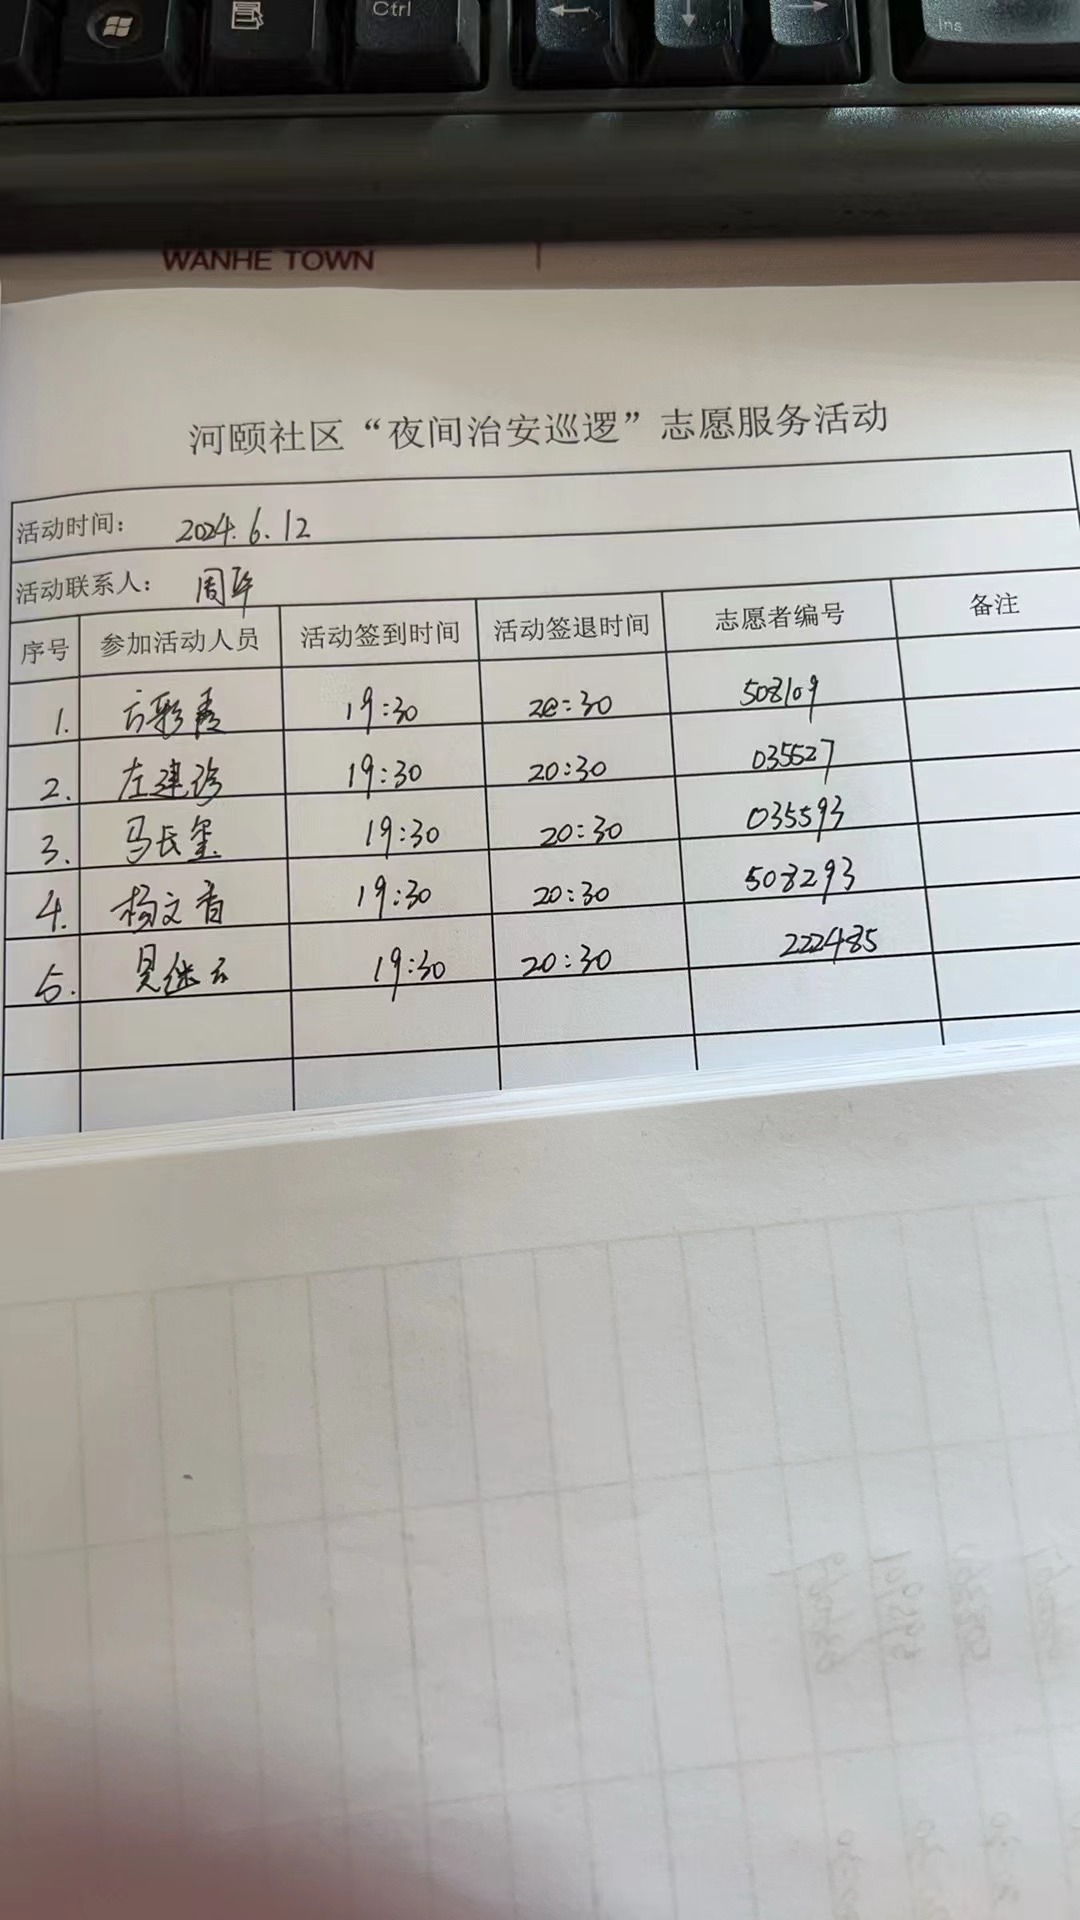 Ctrl
Ins
WANHE TOWN
河颐社区“夜间治安巡逻”志愿服务活动
活动时间： 2024.6.12
活动联系人： 周
序号 参加活动人员 活动签到时间 活动签退时间 志愿者编号 备注
1. 方彩青 19:30 20:30 508109
2. 左建珍 19:30 20:30 035527
3. 马长玺 19:30 20:30 035593
4. 杨文香 19:30 20:30 508293
5. 继云 19:30 20:30 222485